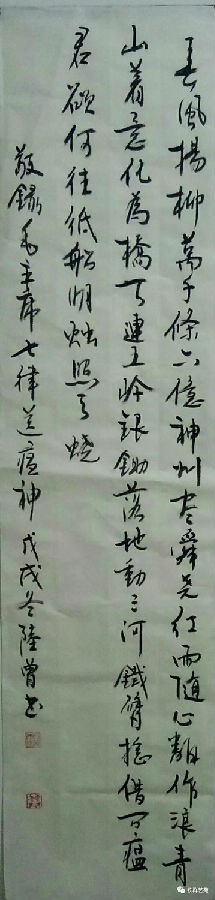 春風揚柳萬千條六億神州尽舜尧红雨随心翻作浪青
山着意化為橋天連五岭銀鋤落地動三河鐵臂摇借问瘟
君欲何往纸船明烛照天烧
敬錄毛主席七律送瘟神 戊戌冬陸曾书